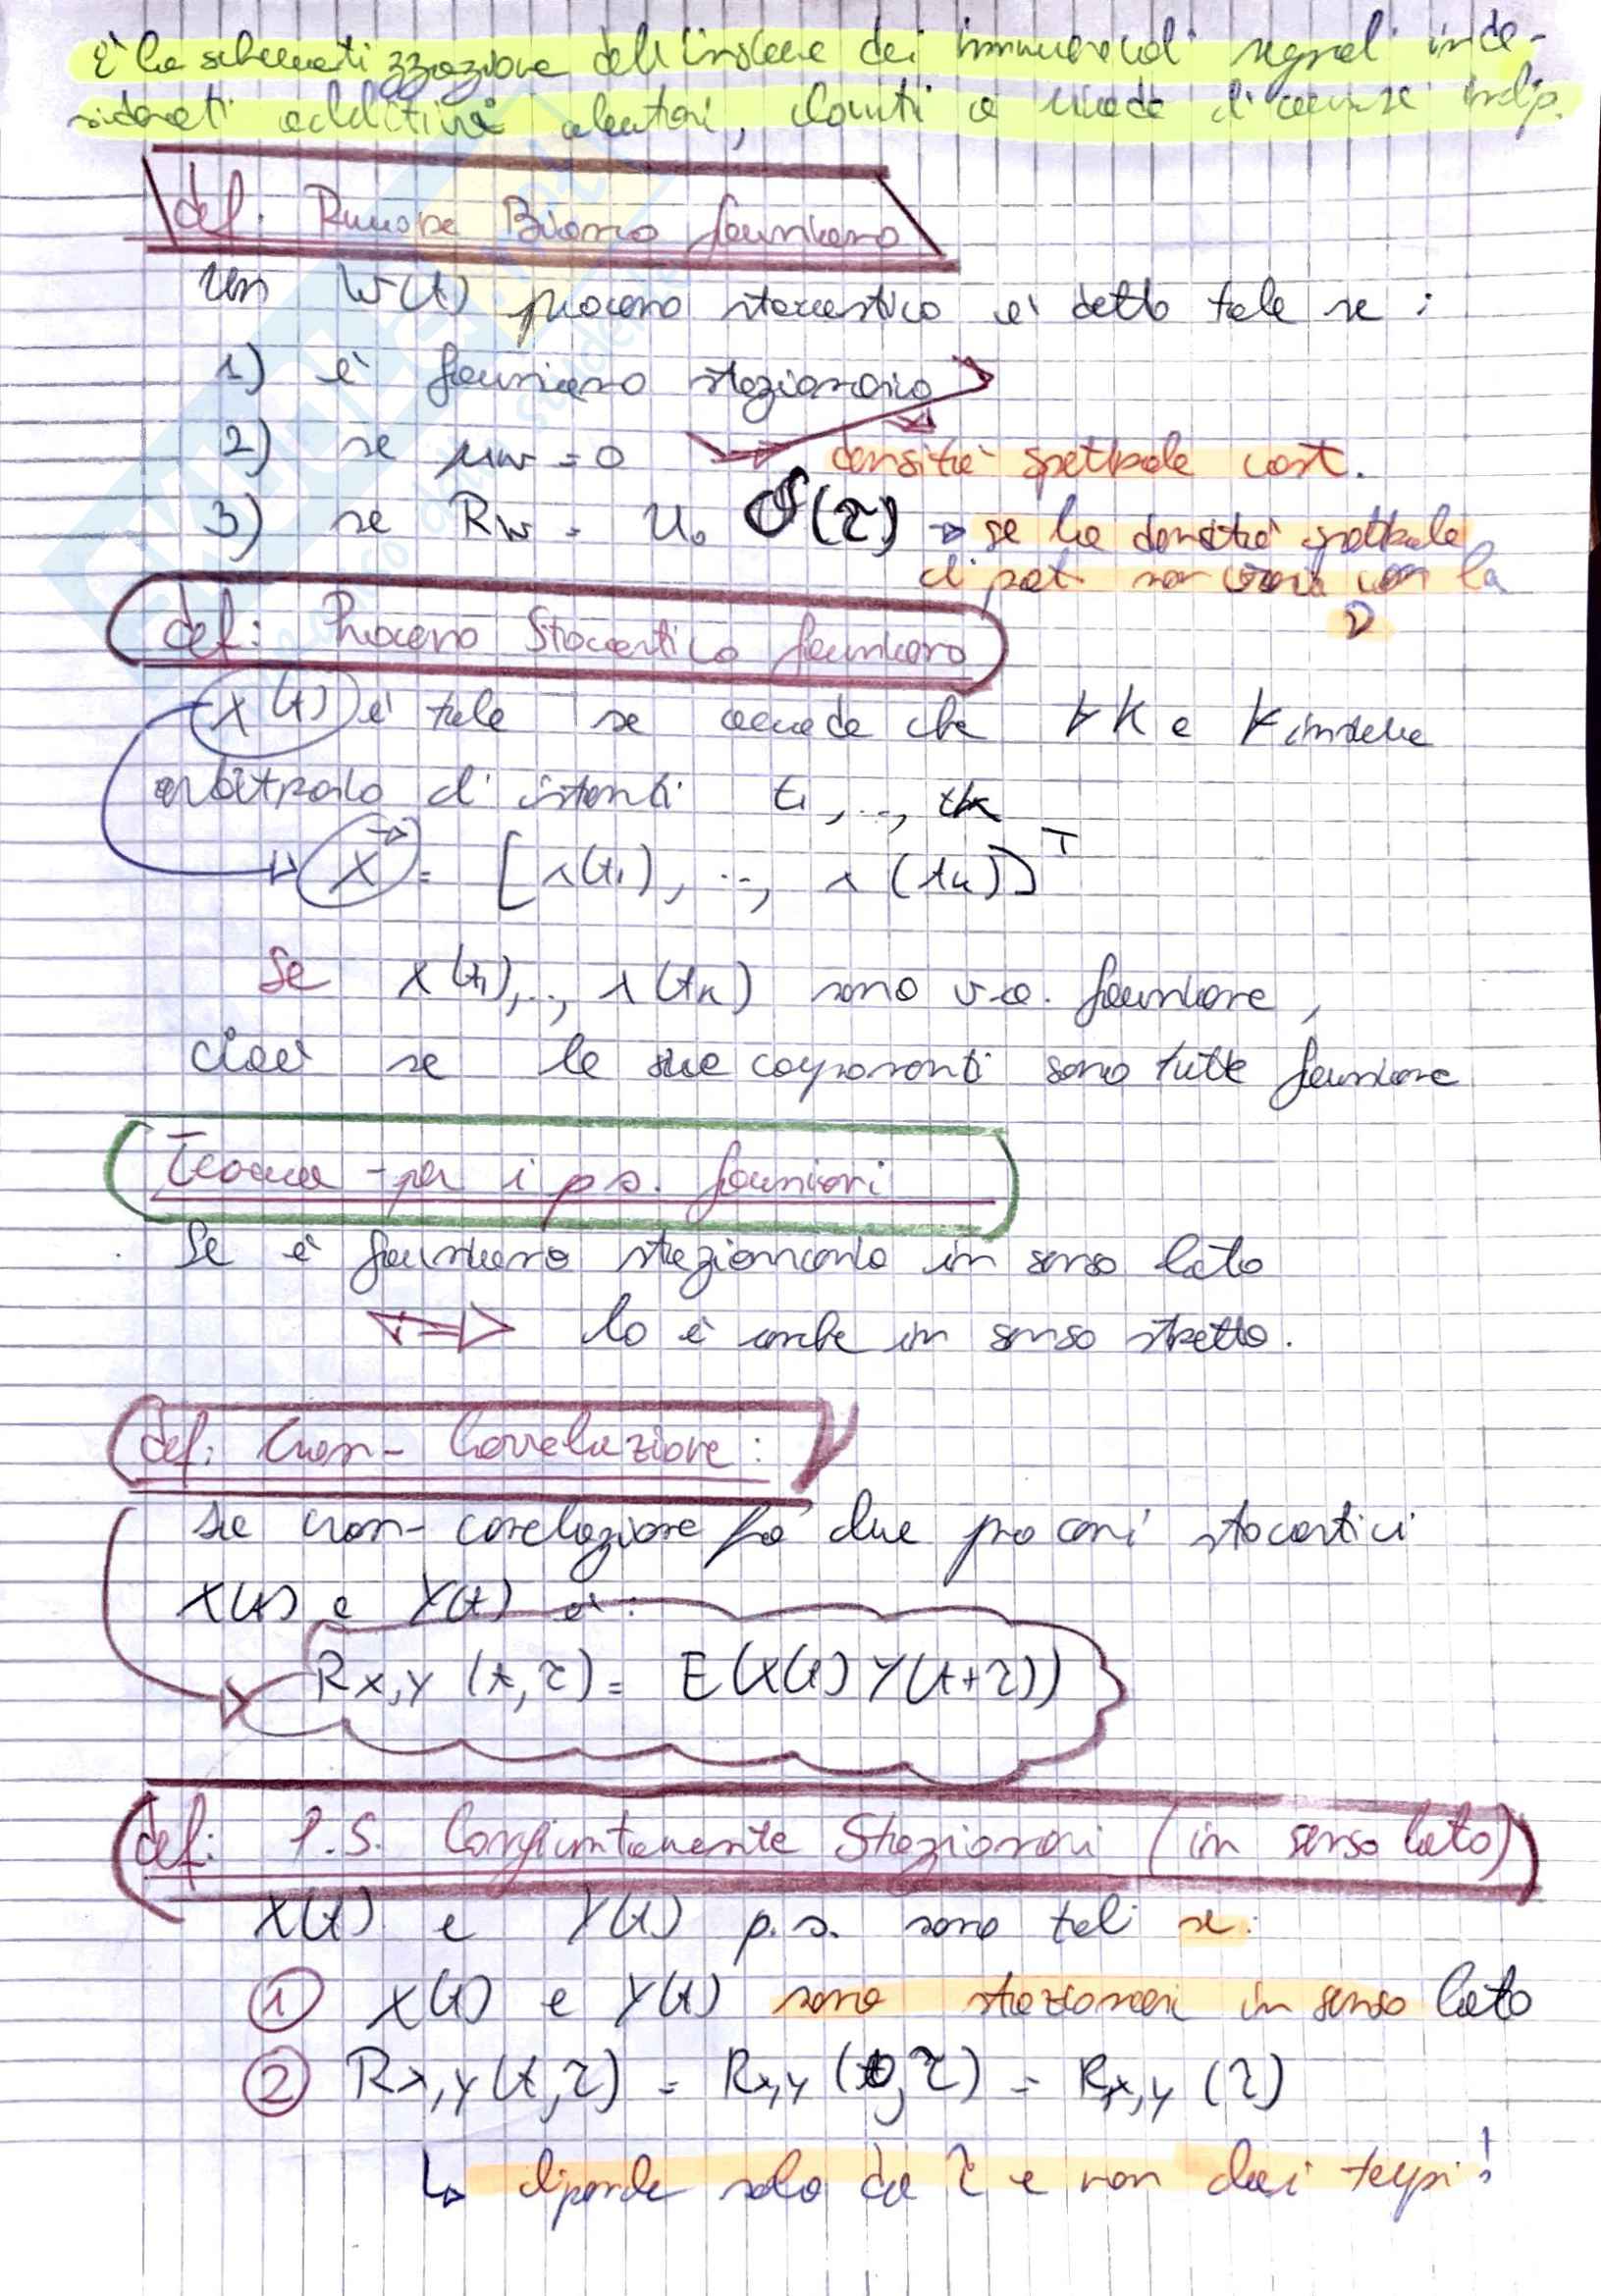 È la schematizzazione dell'insieme dei innumerevoli segnali inde-
siderati additivi aleatori, dovuti a cause indip.
def: Rumore Bianco Gaussiano
Un W(t) processo stocastico è detto tale se :
1) è gaussiano stazionario
2) se μw = 0 densità spettrale cost.
3) se Rw = u₀ δ(τ) → se la densità spettrale
di pot. non varia con la
ν
def: Processo Stocastico Gaussiano
X(t) è tale se accade che ∀K e ∀ insieme
arbitrario di istanti t₁,..., tk
X = [x(t₁), ..., x(tk)]ᵀ
Se X(t₁),.., x(tk) sono v.a. gaussiane,
cioè se le sue componenti sono tutte gaussiane
Teorema - per i p.s. gaussiani
Se è gaussiano stazionario in senso lato
⟺ lo è anche in senso stretto.
def: Cross-Correlazione:
La cross-correlazione fra due processi stocastici
X(t) e Y(t) è:
Rx,y (t,τ) = E(X(t) Y(t+τ))
def: P.S. Congiuntamente Stazionari (in senso lato)
X(t) e Y(t) p.s. sono tali se:
① X(t) e Y(t) sono stazionari in senso lato
② Rx,y(t,τ) = Rx,y (0,τ) = Rx,y (τ)
↳ dipende solo da τ e non dai tempi!